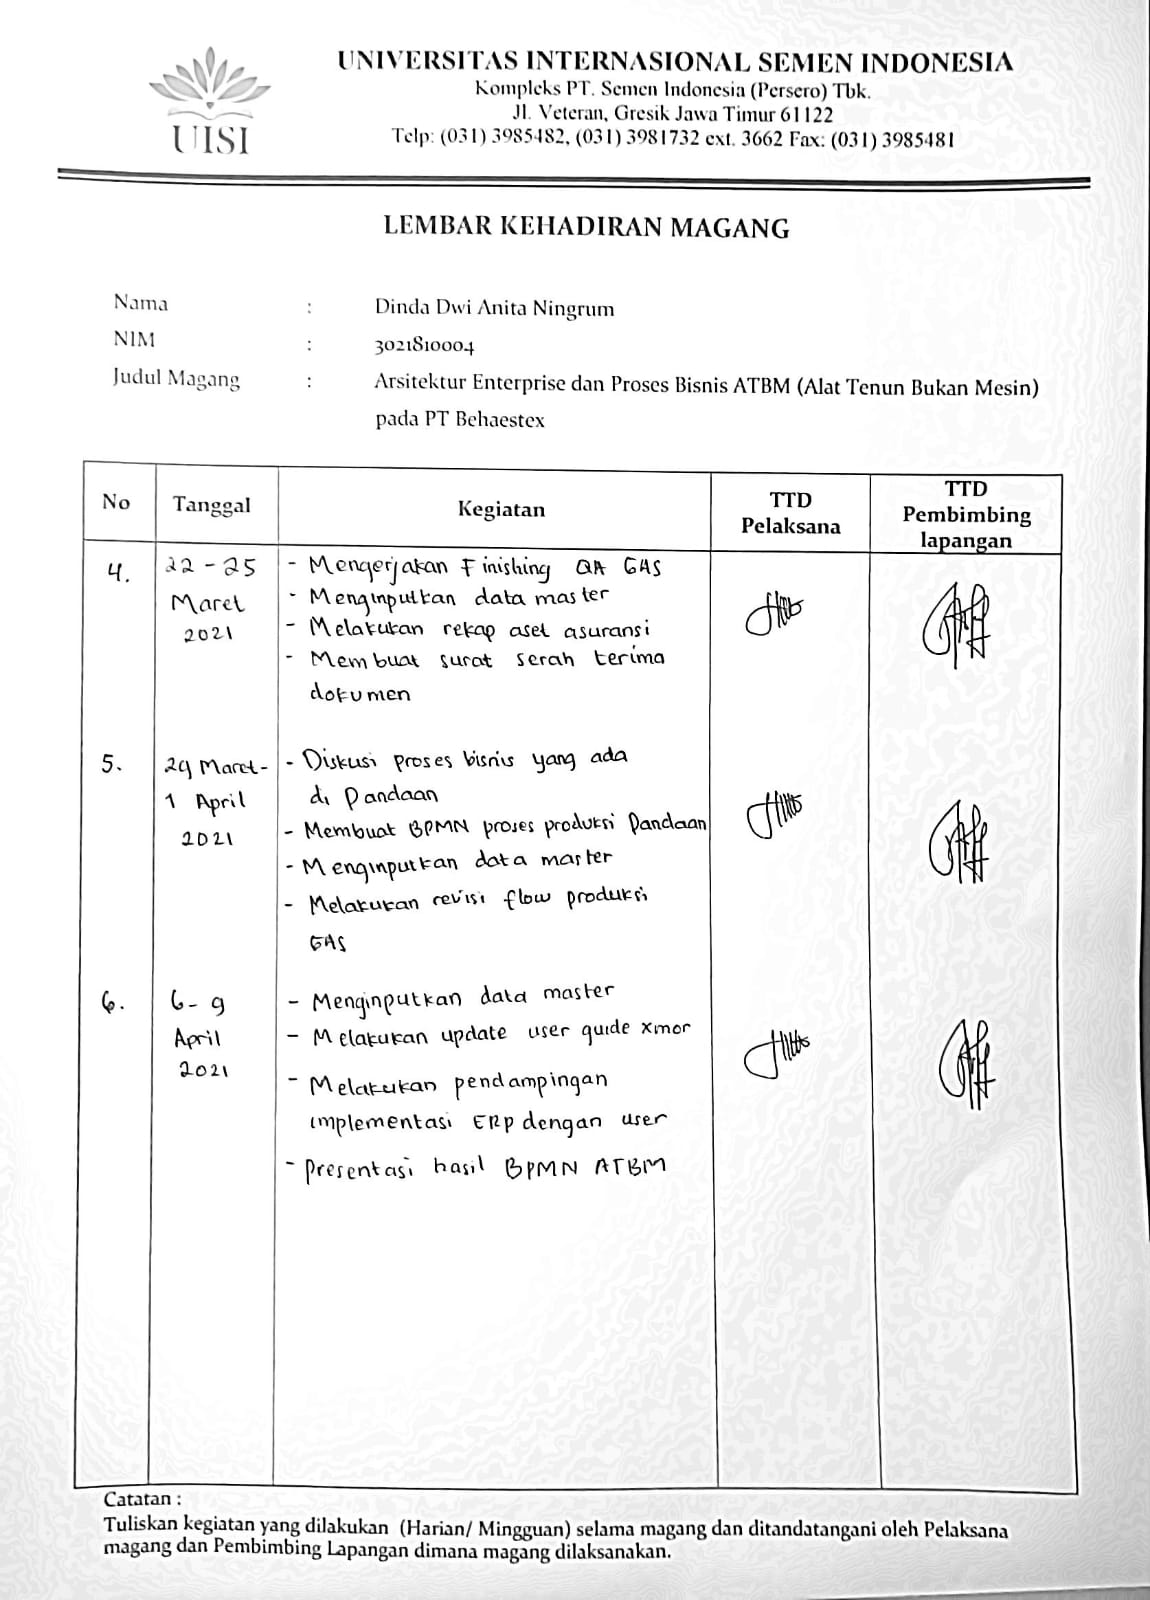 UISI
UNIVERSITAS INTERNASIONAL SEMEN INDONESIA
Kompleks PT. Semen Indonesia (Persero) Tbk.
Jl. Veteran, Gresik Jawa Timur 61122
Telp: (031) 3985482, (031) 3981732 ext. 3662 Fax: (031) 3985481
LEMBAR KEHADIRAN MAGANG
Nama : Dinda Dwi Anita Ningrum
NIM : 3021810004
Judul Magang : Arsitektur Enterprise dan Proses Bisnis ATBM (Alat Tenun Bukan Mesin)
pada PT Behaestex
No Tanggal Kegiatan TTD Pelaksana TTD Pembimbing lapangan
4. 22 - 25 - Mengerjakan Finishing QA GAS
Maret - Menginputkan data master
2021 - Melakukan rekap aset asuransi
- Membuat surat serah terima
dokumen
5. 29 Maret- - Diskusi proses bisnis yang ada
1 April di Pandaan
2021 - Membuat BPMN proses produksi Pandaan
- Menginputkan data master
- Melakukan revisi flow produksi
GAS
6. 6 - 9 - Menginputkan data master
April - Melakukan update user guide xmor
2021 - Melakukan pendampingan
implementasi ERP dengan user
- Presentasi hasil BPMN ATBM
Catatan :
Tuliskan kegiatan yang dilakukan (Harian/ Mingguan) selama magang dan ditandatangani oleh Pelaksana
magang dan Pembimbing Lapangan dimana magang dilaksanakan.